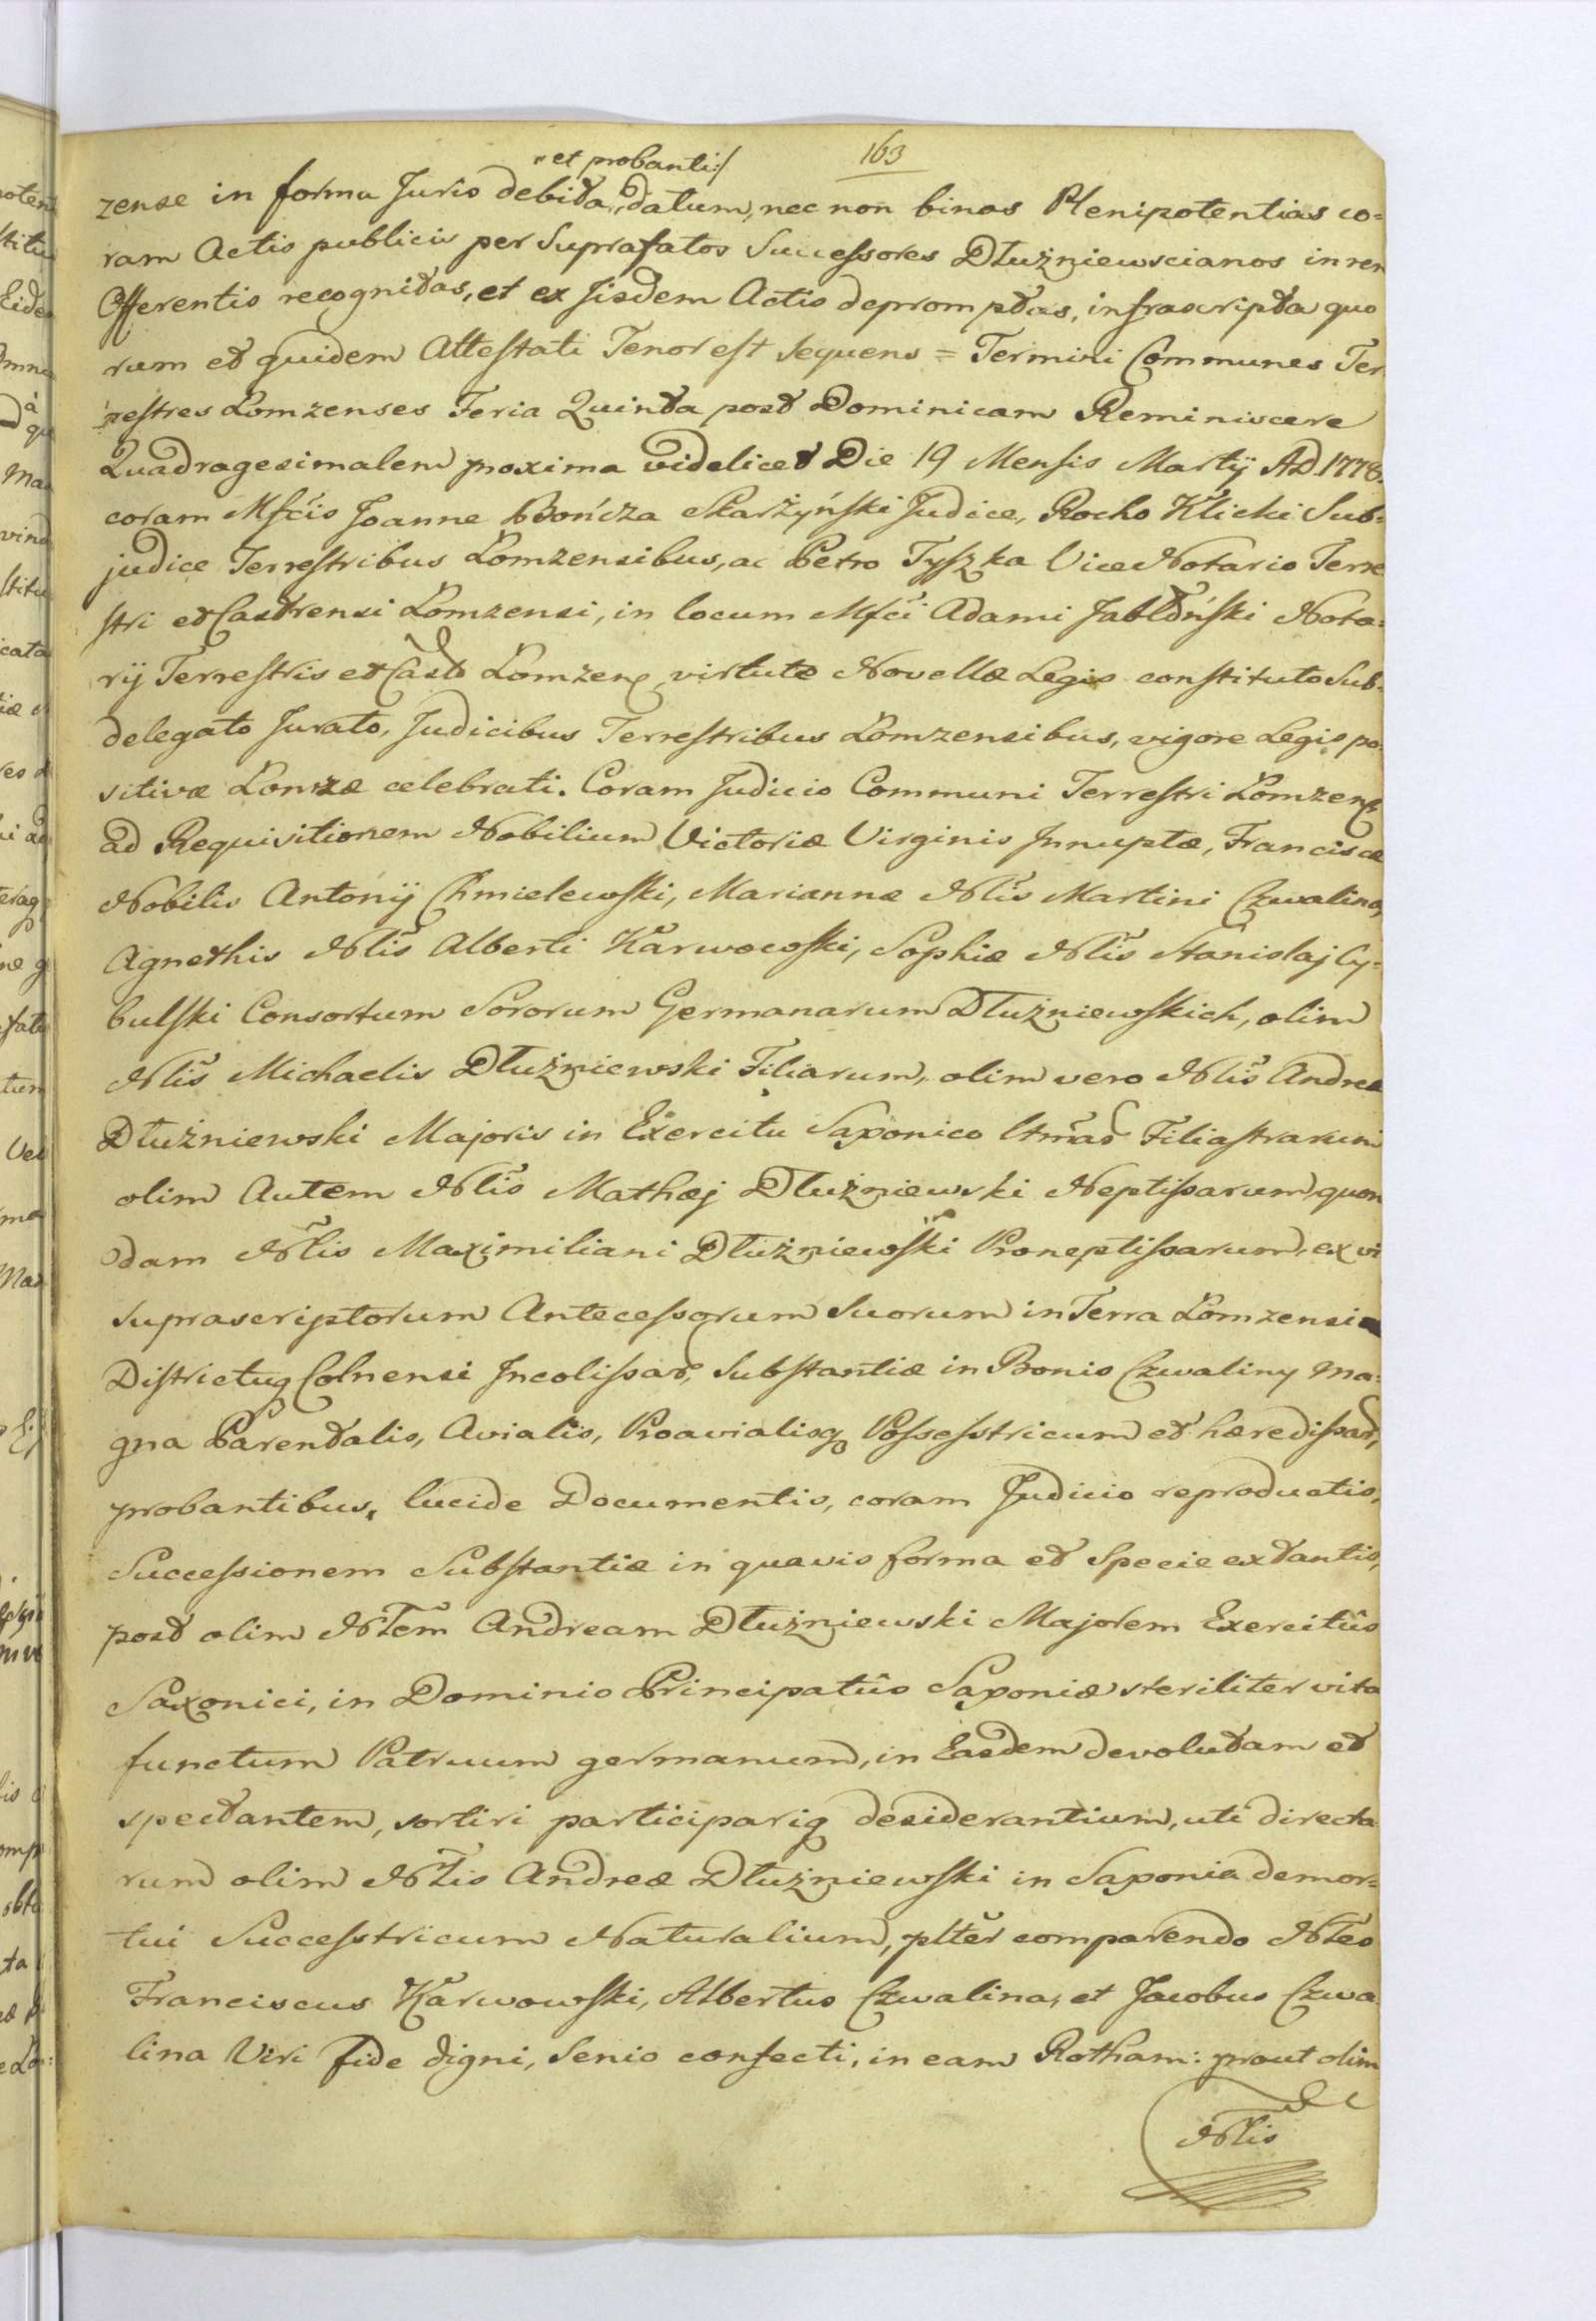 163
"et probanti:/
zense in forma Juris debita, datum, nec non binas Plenipotentias co=
ram Actis publicis per Suprafatos Successores Dłużniewscianos in rem
Offerentis recognitas, et ex Jisdem Actis depromptas, infrascripta quo
rum et quidem Attestati Tenor est sequens = Termini Communes Ter
restres Łomzenses Feria Quinta post Dominicam Reminiscere
Quadragesimalem proxima videlicet Die 19 Mensis Martij AD. 1778.
coram Mfcis Joanne Bończa Skarżyński Judice, Rocho Klicki Sub=
judice Terrestribus Łomzensibus, ac Petro Tyszka Vice Notario Terre
stri et Castrensi Łomzensi, in locum Mfci Adami Jabłoński Nota=
rij Terrestris et Cast Łomzen virtute Novellæ Legis constituto Sub=
delegato Jurato, Judicibus Terrestribus Łomzensibus, vigore Legis po=
sitivæ Łomzæ celebrati. Coram Judicio Communi Terrestri Łomzen
ad Requisitionem Nobilium Victoriæ Virginis Innuptæ, Franciscæ
Nobilis Antonij Chmielewski, Mariannæ Nlis Martini Czwalina,
Agnethis Nlis Alberti Karwowski, Sophiæ Nlis Stanislaj Cy=
bulski Consortum Sororum Germanarum Dłużniewskich, olim
Nlis Michaelis Dłużniewski Filiarum, olim vero Nlis Andreæ
Dłużniewski Majoris in Exercitu Saxonico Filiastrarum
olim Autem Nlis Mathæj Dłużniewski Neptissarum, quon
dam Nlis Maximiliani Dłużniewski Proneptissarum, ex vi
suprascriptorum Antecessorum Suorum in Terra Łomzensi
Districtuq Colnensi Incolissar, Substantiæ in Bonis Czwaliny Ma=
gna Parentalis, Avialis, Proavialisq Possesstricum et hæredissar,
probantibus, lucide Documentis, coram Judicio reproductis,
Successionem Substantiæ in quavis forma et Specie extantis,
post olim Nlem Andream Dłużniewski Majorem Exercitûs
Saxonici, in Dominio Principatûs Saxoniæ steriliter vita
functum Patruum germanum, in Easdem devolutam et
spectantem, sortiri participariq desiderantium, uti directa
rum olim Nlis Andreæ Dłużniewski in Saxonia demor=
tui Successtricum Naturalium, plter comparendo Nles
Franciscus Karwowski, Albertus Czwalina, et Jacobus Czwa
lina Viri fide digni, Senio confecti, in eam Rotham: prout olim
Nlis